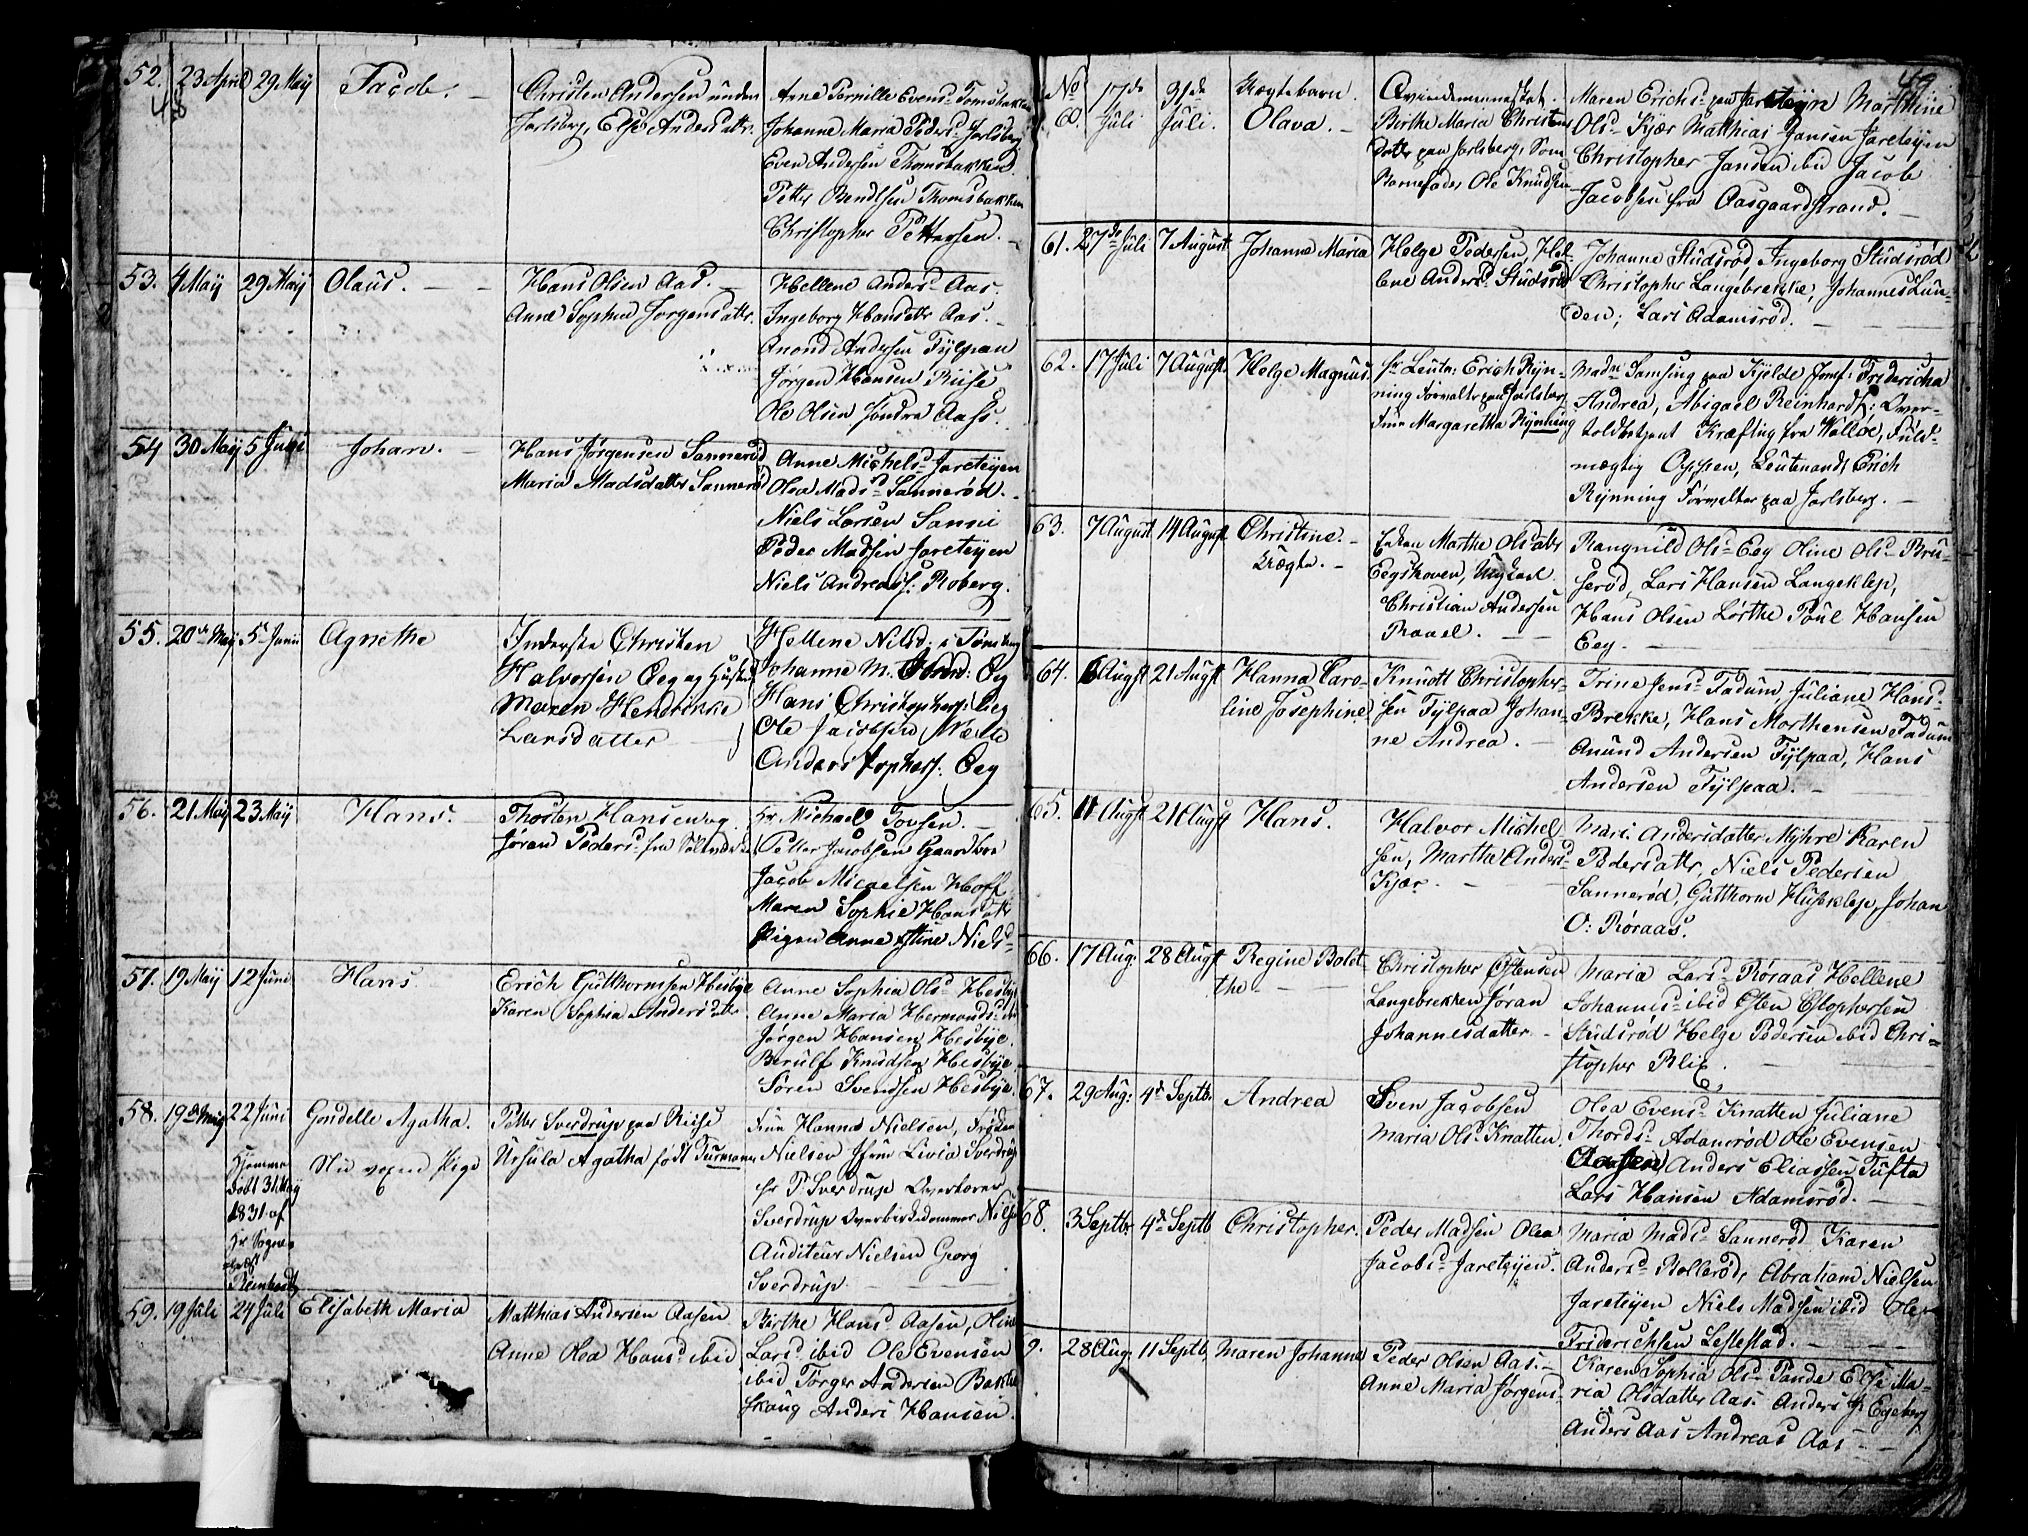 48
52. 23 April 29 May Jacob. Christen Andersen under
Jarlsberg, Else Andersdattr.
Anne Pernille Evens-
Johanne Maria Peders- Jarlsberg
Even Andersen Thomsbakken
Petter Bendtsen Thomsbakken
Christopher Pettersen.
53. 4 May 29 May Olaus. Hans Olsen Aas.
Anne Sophia Jørgensdattr.
Hellene Anders- Aas.
Ingeborg Hansdattr Aas.
Anond Andersen Fylpaa
Jørgen Hansen Riise
Ole Olsen søndre Aas.
54 30 May 5 Juni Johan. Hans Jørgensen Sannerød
Maria Madsdatter Sannerød
Anne Michels- Jareteyen
Olea Mads- Sannerød.
Niels Larsen Sanni
Peder Madsen Jareteyen
Niels Andreass: Roberg.
55. 20de May 5 Junii Agnethe Inderste Christen
Halvorsen Eeg og Hustru
Maren Hendrikke
Larsdatter
Hellene Nilsd: i Tønsberg
Johanne M. Eeg
Hans Christophers: Eeg
Ole Jacobsen
Anders Eeg
56. 21 May 23 May Hans. Thosten Hansen og
Jøren Peders- fra
Hr Michael Tovsen.
Petter Jacobsen Gaardboe
Jacob Micaelsen Hoff
Maren Sophie Hansdatr
Pigen Anne Stine Niels-
57. 19 May 12 Juni Hans Erich Gutthormsen Hesbye
Karen Sophia Andersdatr
Anne Sophia Ols- Hesbye
Anne Maria Hermands-
Jørgen Hansen Hesbye.
Berulf Knudsen Hesbye
Søren Svendsen Hesbye.
58. 19de May 22 Juni Gondelle Agatha.
Petter Sverdrup paa Riise
Ursula Agatha født
Hjemme
døbt 31 May
1831 af
Hr Sogne-
præst
Reinhardt
Frue Hanna Nielsen, Frøken
Nielsen Frue Livia Sverdrup
Hr P Sverdrup
Sverdrup
Auditeur Nielsen Georg
Sverdrup
59. 19 Juli 24 Juli Elisabeth Maria Matthias Andersen Aasen
Anne Olea Hans- ibid
Birthe Hans- Aasen, Oline
Lars- ibid Ole Evensen
ibid Torger Andersen
Anders Hansen.
49
No
60. 17de Juli 31de Juli. Uægtebarn.
Olava.
Qvindemennesket
Birthe Maria Christens
datter paa Jarlsberg, Som
Barnefader Ole Knudsen
Maren Erichs- paa Jareteyen Marthine
Ols- Kjær Matthias Jansen Jareteyen
Christopher Jansen ibid Jacob
Jacobsen fra Aasgaardstrand.
61. 27de Juli 7 August Johanne Maria Helge Pedersen, Hel-
lene Anders- Studsrød
Johanne Studsrød Ingeborg Studsrød
Christopher Langebrekke, Johannes Lun-
den; Lars Adamsrød.
62. 17 Juli 7 August. Helge Magnus. Hr Leutn: Erich Ryn-
ning Forvalter paa Jarlsberg
Frue Margaretha Rynning
Madm Samsing paa Kjelde Jomf: Fridericha
Andrea, Abigael Reinhardt: Over-
toldbetjent Kræfting fra Walløe, Fuld-
mægtig Oppen, Leutenant Erich
Rynning Forvalter paa Jarlsberg.
63. 7 August 14 August Christine.
Uægte.
Enken Marthe Olsdatr
Eegskoven, Ungkarl
Christian Andersen
Raael.
Rangnild Ols- Eeg Oline Ols- Bru-
serød, Lars Hansen Langeklep,
Hans Olsen Lørthe Poul Hansen
Eeg.
64. 6 Augst 21 Augst Hanna Caro-
line Josephine
Knutt Christopher-
sen Fylpaa Johan-
ne Andrea.
Trine Jens- Fadum, Juliane Hans-
Brekke, Hans Morthensen Fadum
Anund Andersen Fylpaa, Hans
Andersen Fylpaa.
65. 11 Augst 21 Augst Hans. Halvor Michel
sen, Marthe Anders-
Kjær.
Mari Andersdatter Myhre Karen
Pedersdattr, Niels Pedersen
Sannerød, Gutthorm Huseklep, Johan
O: Røraas.
66. 17 Aug. 28 Augst Regine Bolet-
the
Christopher Ostensen
Langebrekken Jøran
Johannesdatter
Maria Lars- Røraas Hellene
Johannis- ibid Osten Christophersen
Studsrød Helge Pedersen ibid Chri-
stopher Blix.
67. 29 Aug: 4de Septb. Andrea Sven Jacobsen
Maria Ols- Knatten.
Olea Evens- Knatten Juliane
Thords- Adamsrød Ole Evensen
Aasen, Anders Eliassen Tufta
Lars Hansen Adamsrød.
68. 3 Septbr. 4de Septb Christopher. Peder Madsen Olea
Jacobs- Jareteyen.
Maria Mads- Sannerød Karen
Anders- Rollerød, Abraham Nielsen
Jareteyen Niels Madsen ibid Ole
Friderichsen Lestestad.
9. 28 Aug. 11 Septb. Maren Johanne Peder Olsen Aas.
Anne Maria Jørgens-
Karen Sophia Ols- Pande Else Ma-
ria Olsdatter Aas. Anders H: Egeberg
Anders Aas Andreas Aas